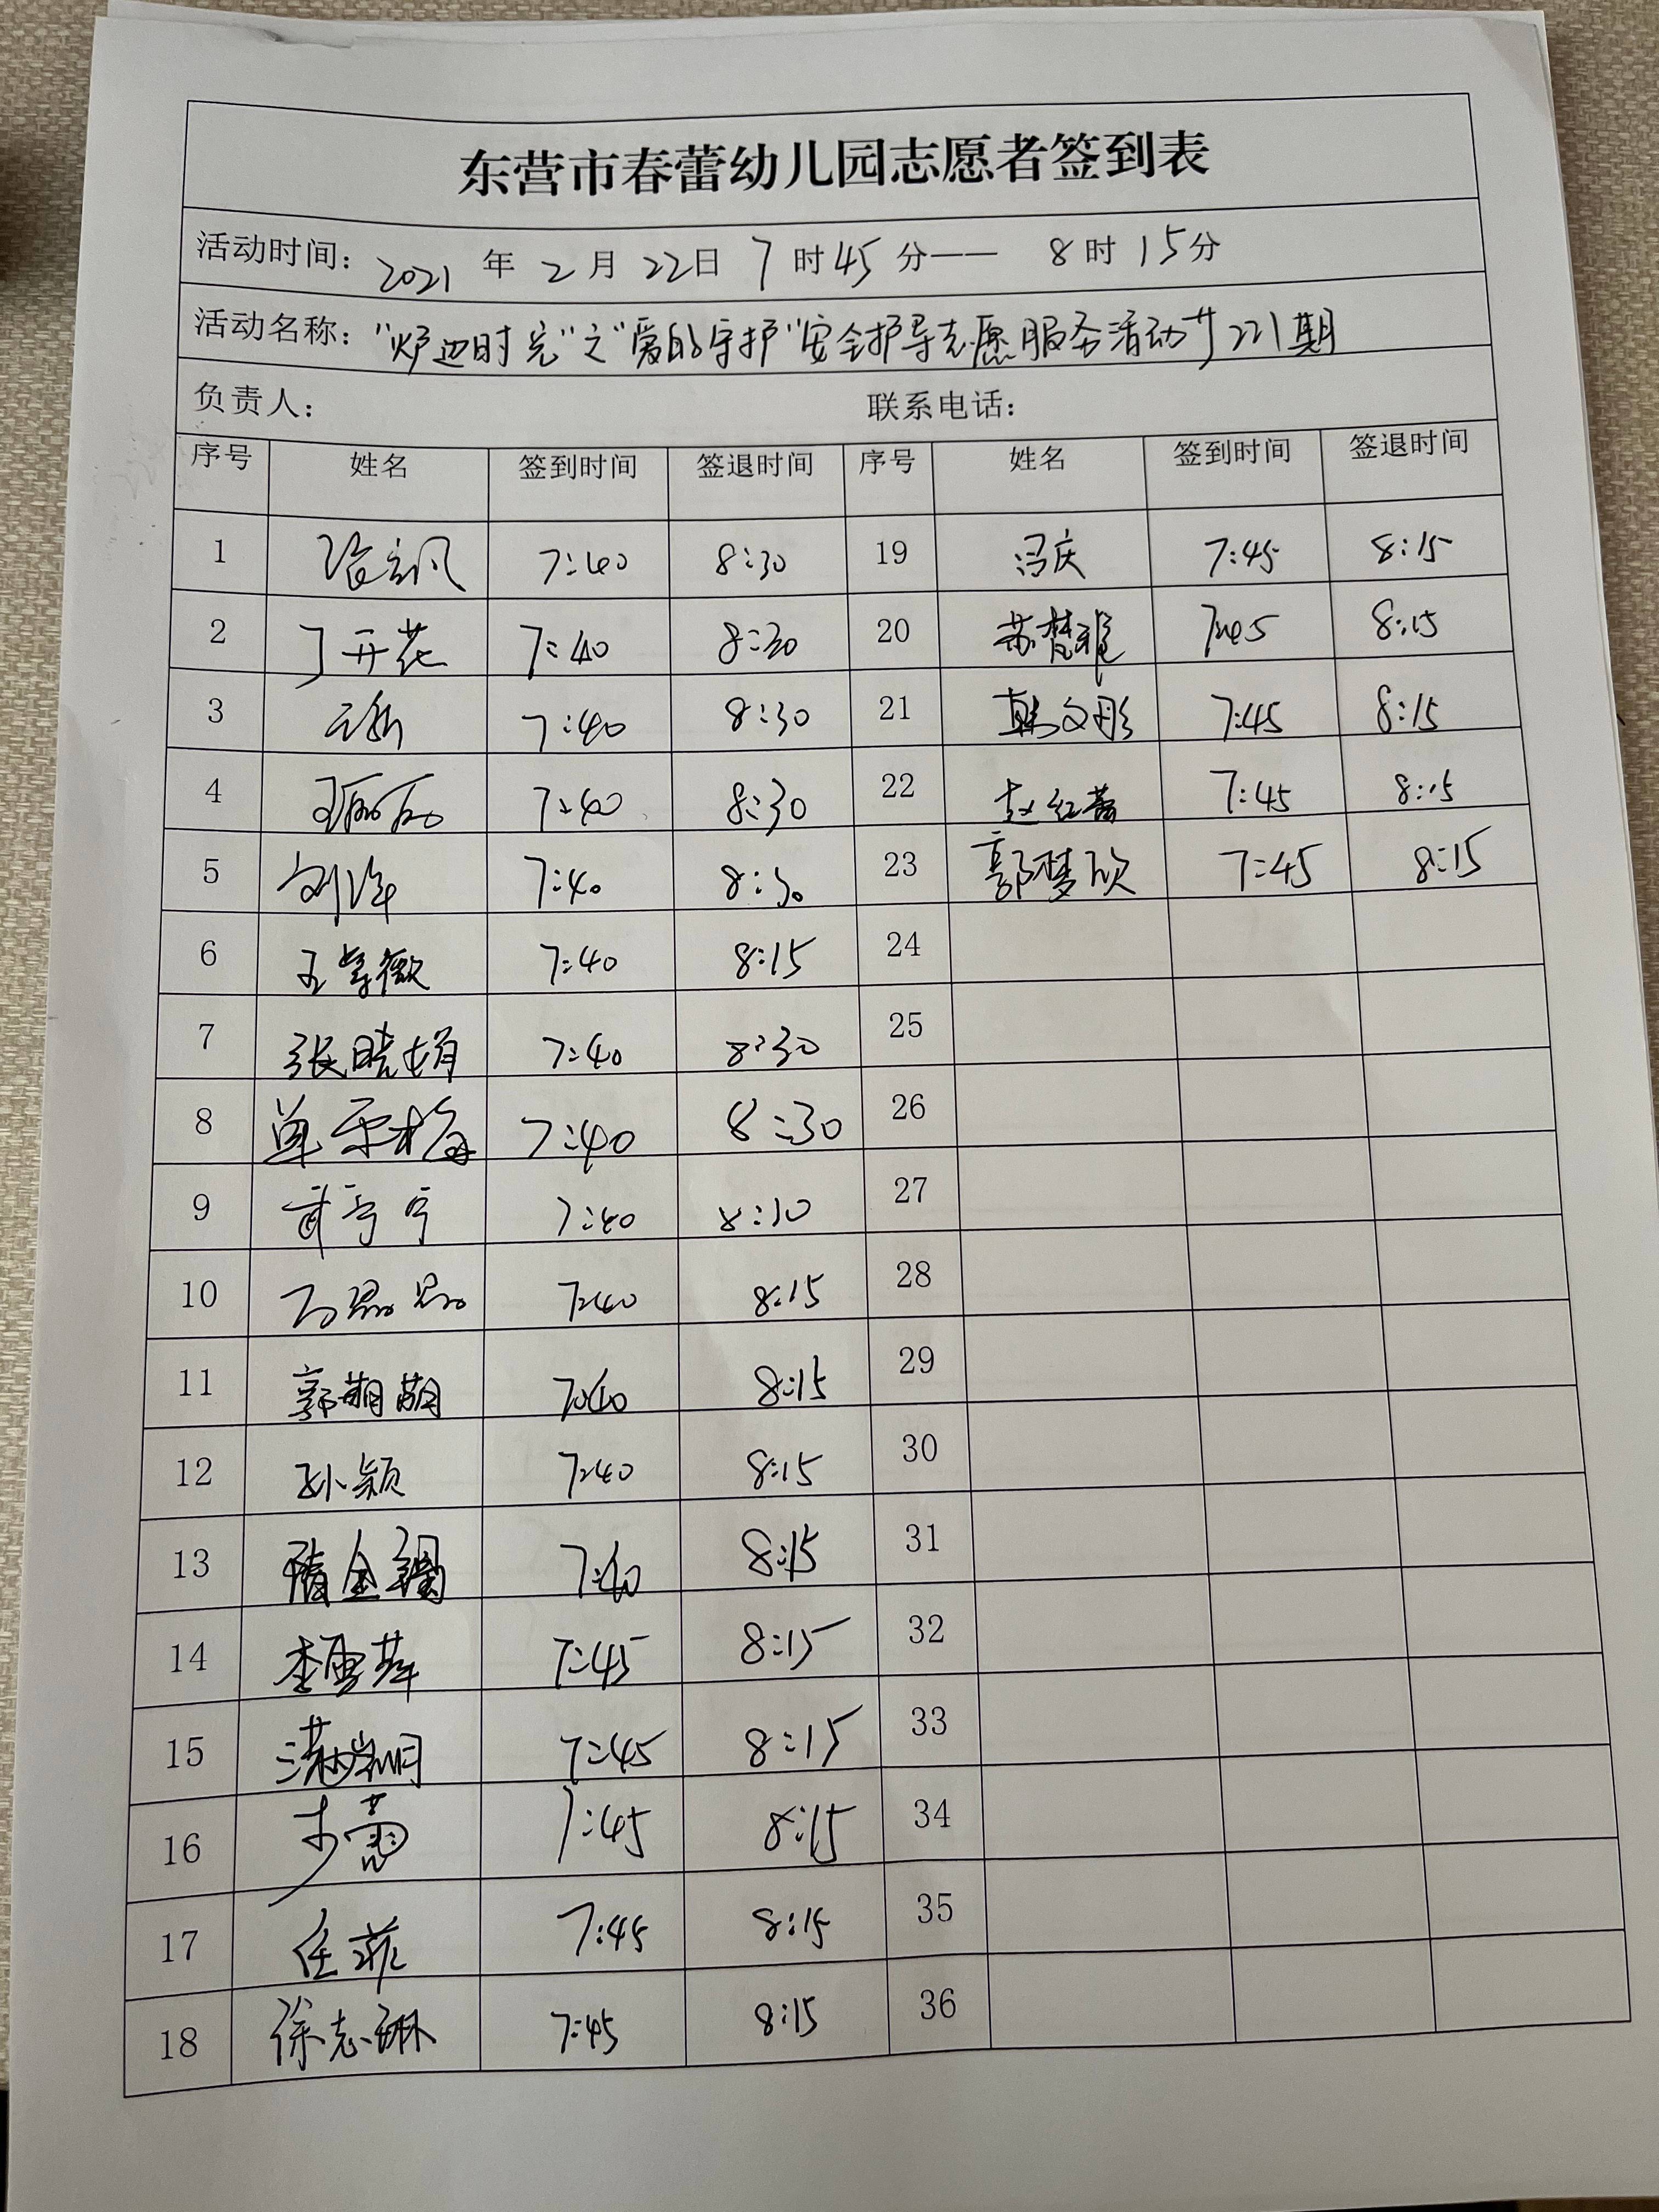 东营市春蕾幼儿园志愿者签到表
活动时间：2021 年 2 月 22 日 7 时 45 分—— 8 时 15 分
活动名称："炉边时光"之"爱的守护"安全护导志愿服务活动 221期
负责人： 联系电话：
序号 姓名 签到时间 签退时间 序号 姓名 签到时间 签退时间
1 7:40 8:30 19 冯庆 7:45 8:15
2 丁开花 7:40 8:30 20 苏梦雅 7:45 8:15
3 7:40 8:30 21 韩文彤 7:45 8:15
4 7:40 8:30 22 赵红蕾 7:45 8:15
5 7:40 8:30 23 郭梦欣 7:45 8:15
6 王紫薇 7:40 8:15 24
7 张晓娟 7:40 8:30 25
8 单玉梅 7:40 8:30 26
9 宁宁 7:40 8:30 27
10 7:40 8:15 28
11 郭萌萌 7:40 8:15 29
12 孙颖 7:40 8:15 30
13 隋金 7:40 8:15 31
14 李雪萍 7:45 8:15 32
15 7:45 8:15 33
16 7:45 8:15 34
17 任菲 7:45 8:15 35
18 徐志琳 7:45 8:15 36